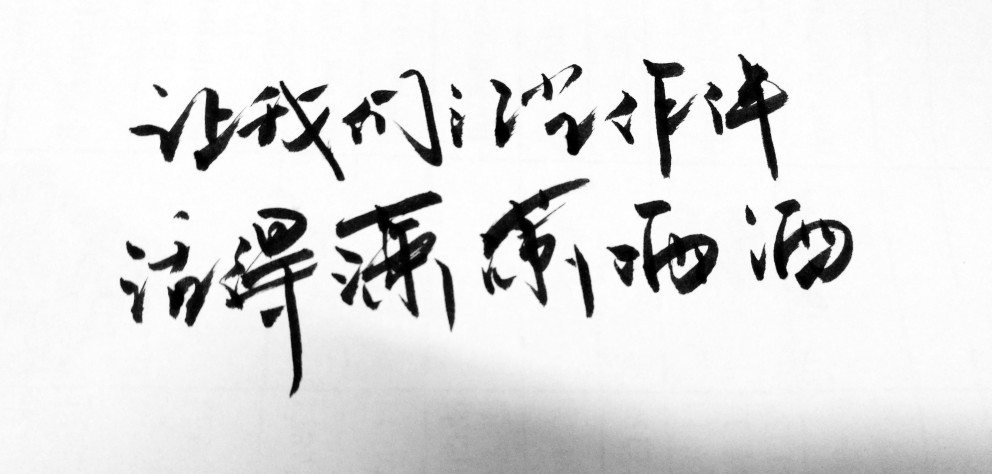 让我们红尘作伴
活得潇潇洒洒